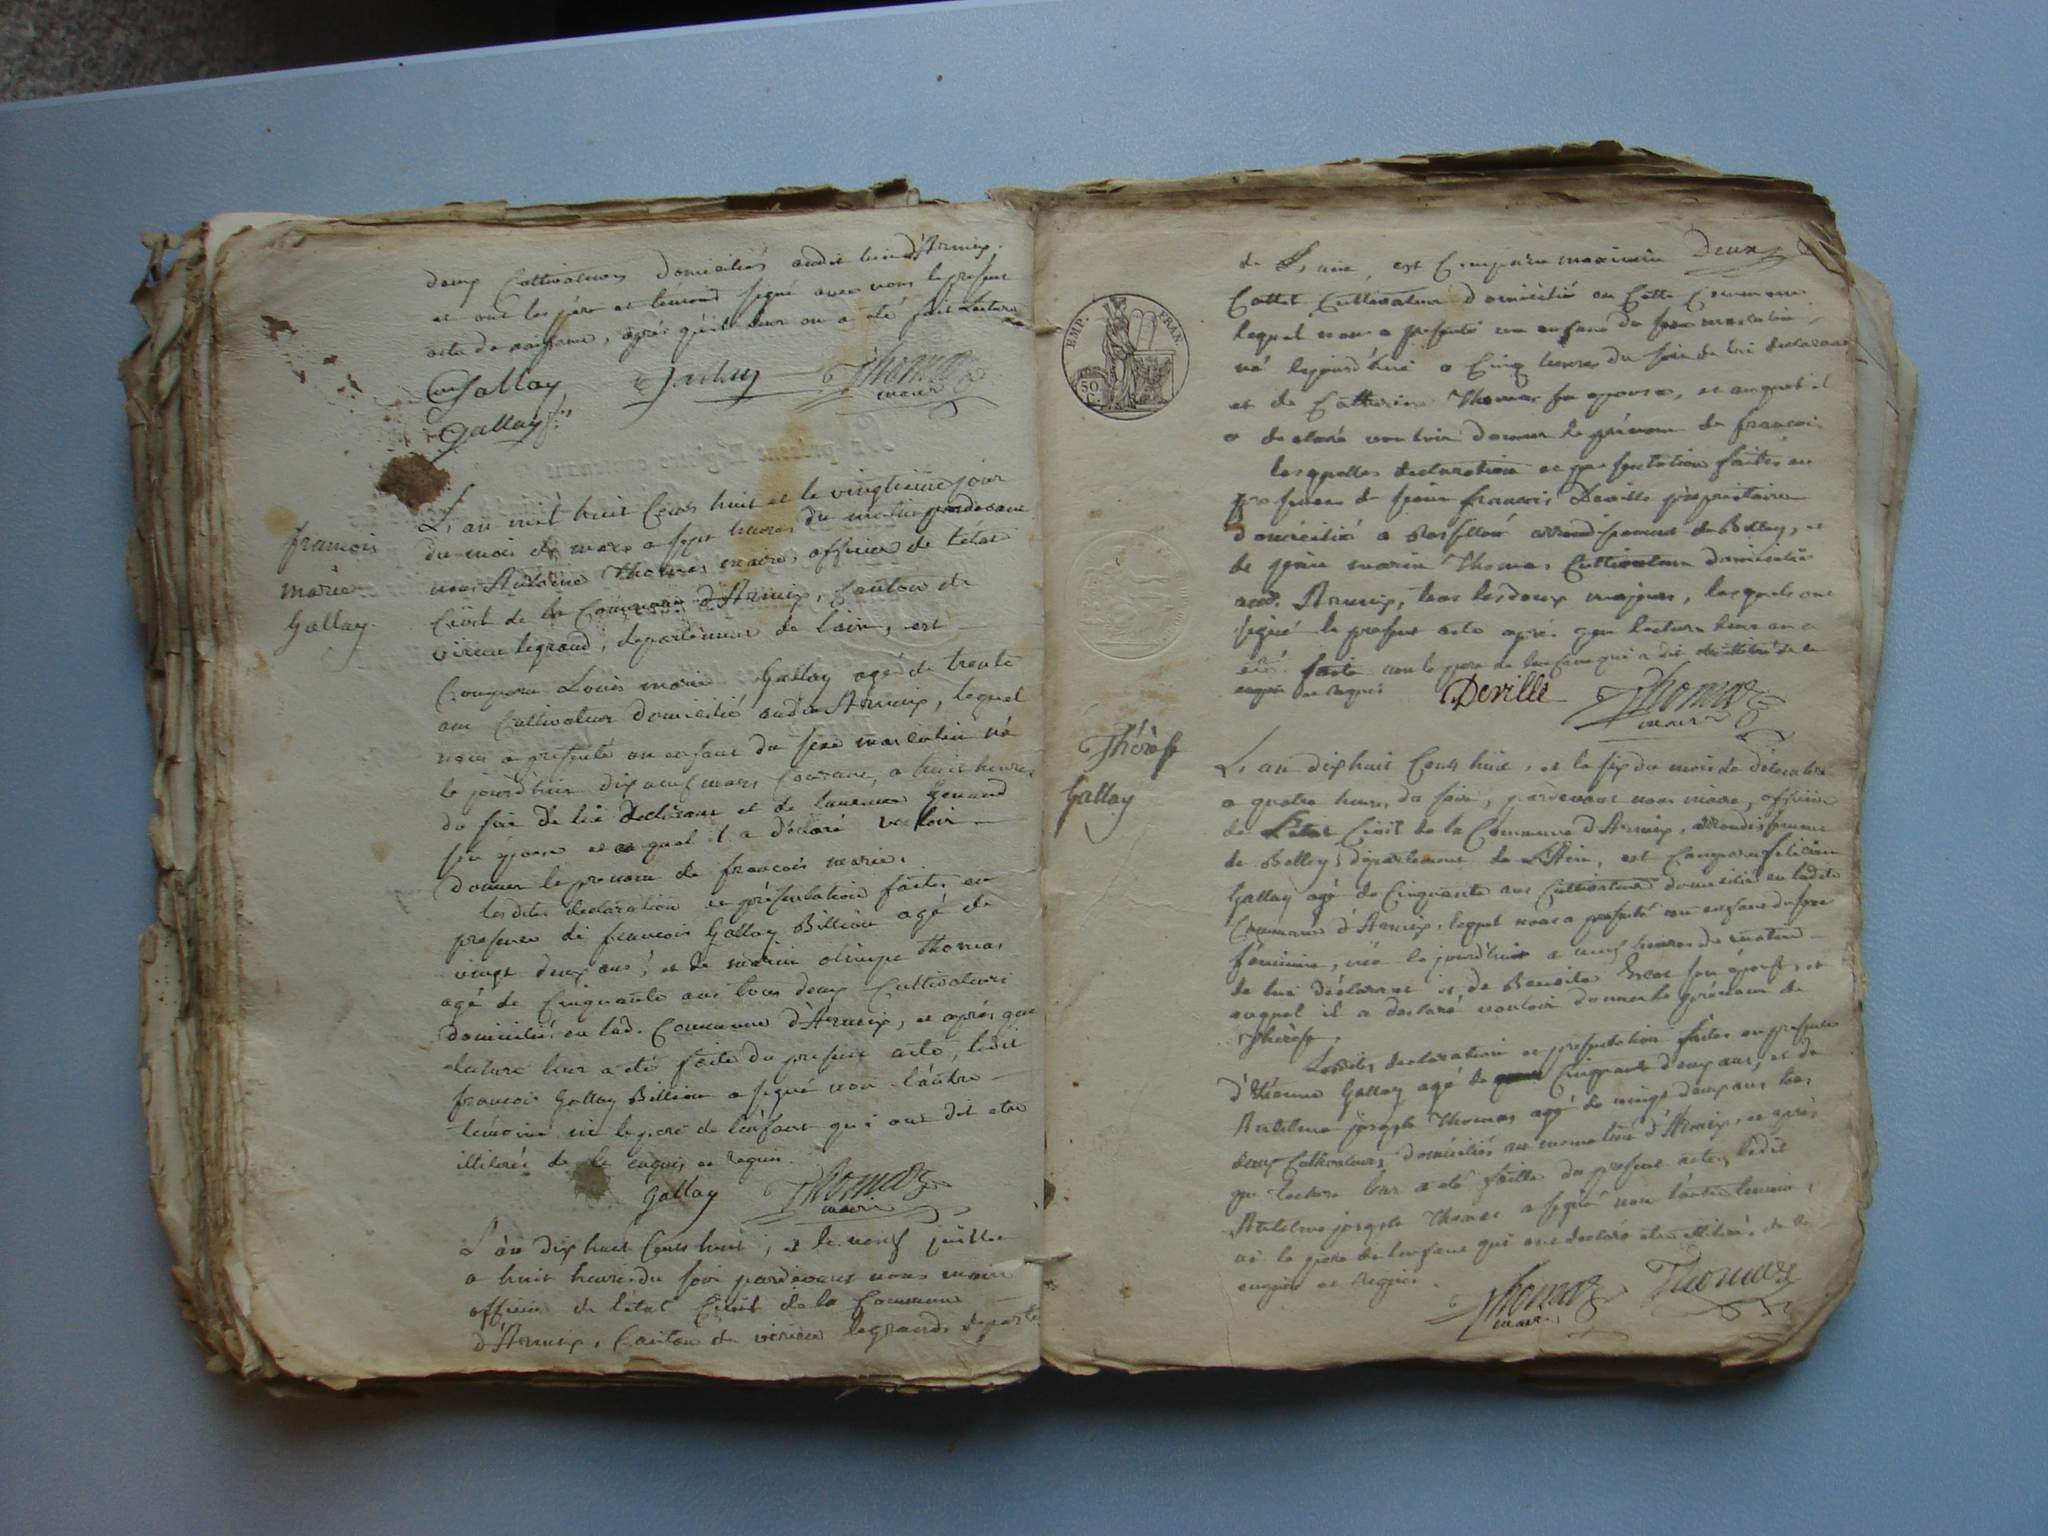 deux Cultivateurs domiciliés audit lieu d'Armix.
et ont les père et témoins signé avec nous le présent
acte de naissance, après qu'il leur en a été fait Lecture
Gallay Thomas
maire
Gallay
françois
marie
Gallay
L'an mil huit Cents huit et le vingtième jour
du mois de mars a sept heures du matin pardevant
nous Antoine Thomas maire, officier de l'état
Civil de la Commune d'Armix, Canton de
virieu legrand, departement de lain, est
Comparu Louis marie Gallay agé de trente
ans Cultivateur domicilié audit Armix, lequel
nous a presenté un enfant du sexe masculin né
le jourd'hier dix neuf mars Courant, a huit heures
du soir de lui déclarant et de laurence Genaud
son epouse et au quel il a déclaré vouloir
donner le prenom de françois marie.
lesdites declaration et présentation faites en
presence de francois Gallay Billion agé de
vingt deux ans, et de marin olimpe thomas
agé de Cinquante ans tous deux Cultivateurs
domiciliés en lad. Commune d'Armix, et après que
lecture leur a été faite du present acte, ledit
francois Gallay Billion a signé non l'autre
témoin ni le pere de l'enfant qui ont dit etre
illiterés de le enquis et requis.
Gallay Thomas
maire
L'an dix huit Cents huit, et le neuf juillet
a huit heures du soir pardevant nous maire
officier de l'état Civil de la Commune
d'Armix, Canton de virieu legrand, departe
Deux
de L'ain, est Comparu maximin
Cottet Cultivateur domicilié en Cette Commune
lequel nous a presenté un enfant du sexe masculin
né lejourd'hui a Cinq heures du soir de lui déclarant
et de Catherine Thomas son epouse, et auquel il
a declaré vouloir donner le prénom de françois
EMP. FRAN.
50
C.
lesquelles declaration et presentation faites en
presence de sieur francois Deville propriétaire
domicilié a Rossillon arrondissement de Belley, et
de sieur marin Thomas Cultivateur domicilié
aud. Armix, tous les deux majeurs, lesquels ont
signé le present acte après que lecture leur en a
été faite non le pere de lenfant qui a dit etre illitéré de le
enquis et requis Deville Thomas
maire
Thérèse
Gallay
L'an dix huit Cents huit, et le six du mois de décembre
a quatre heures du soir, pardevant nous maire, officier
de L'état Civil de la Commune d'Armix, arrondissement
de Belley, département de L'Ain, est Comparu felicien
Gallay agé de Cinquante ans Cultivateur domicilié en ladite
Commune d'Armix, lequel nous a presenté un enfant du sexe
féminine, née le jourd'huit a neuf heures du matin
de lui déclarant et de Benoite son épouse, et
auquel il a declaré vouloir donner le prénom de
Thérèse.
Lesdites declaration et presentation faites en presence
d'étienne Gallay agé de Cinquante deux ans, et de
Antelme joseph Thomas agé de vingt deux ans tous
deux Cultivateurs domiciliés d'Armix, et après
que lecture leur a été faitte du present acte, ledit
Antelme joseph Thomas a signé non l'autre temoin,
ni le pere de lenfant qui ont declaré etre illiterés, de le
enquis et requis.
Thomas Thomas
maire